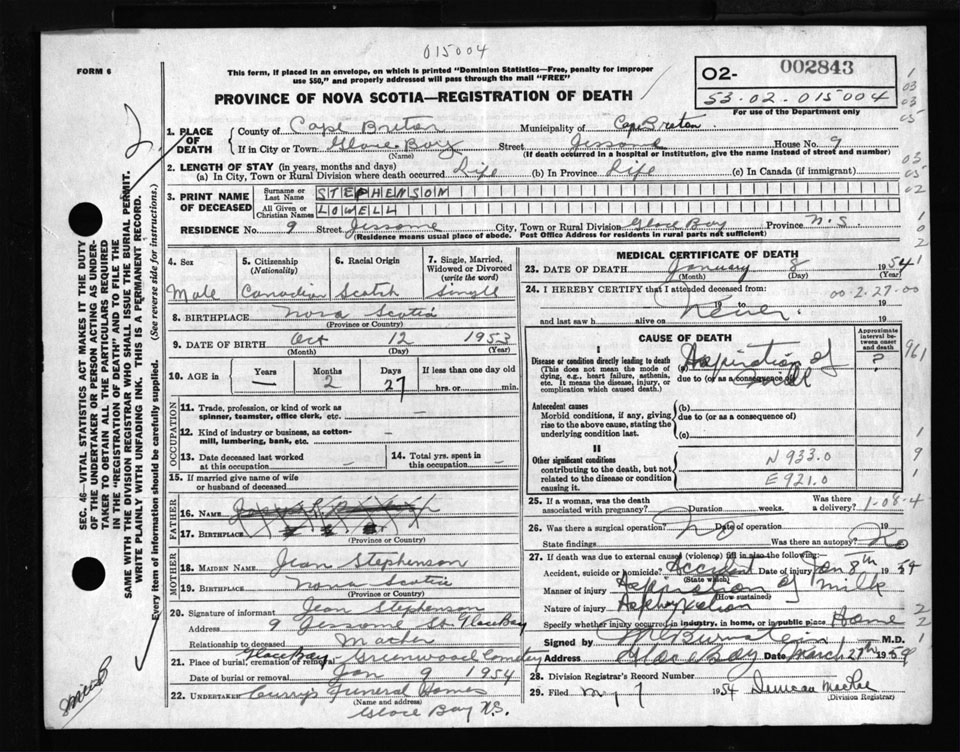 015004
FORM 6
This form, if placed in an envelope, on which is printed "Dominion Statistics—Free, penalty for improper
use $50," and properly addressed will pass through the mail "FREE"
PROVINCE OF NOVA SCOTIA—REGISTRATION OF DEATH
02- 002843
53-02-015004
For use of the Department only
1. PLACE OF DEATH
County of Cape Breton Municipality of Cape Breton
If in City or Town Glace Bay Street Jessome House No. 9
(Name) (If death occurred in a hospital or institution, give the name instead of street and number)
2. LENGTH OF STAY (in years, months and days)
(a) In City, Town or Rural Division where death occurred Life (b) In Province Life (c) In Canada (if immigrant)
3. PRINT NAME OF DECEASED
Surname or Last Name STEPHENSON
All Given or Christian Names LOWELL
RESIDENCE No. 9 Street Jessome City, Town or Rural Division Glace Bay Province N.S
(Residence means usual place of abode. Post Office Address for residents in rural parts not sufficient)
4. Sex Male
5. Citizenship (Nationality) Canadian
6. Racial Origin Scotch
7. Single, Married, Widowed or Divorced (write the word) Single
8. BIRTHPLACE Nova Scotia
(Province or Country)
9. DATE OF BIRTH Oct 12 1953
(Month) (Day) (Year)
10. AGE in Years — Months 2 Days 27 If less than one day old hrs. or min.
OCCUPATION
11. Trade, profession, or kind of work as
spinner, teamster, office clerk, etc. —
12. Kind of industry or business, as cotton-
mill, lumbering, bank, etc. —
13. Date deceased last worked
at this occupation —
14. Total yrs. spent in
this occupation —
15. If married give name of wife
or husband of deceased
FATHER
16. NAME
17. BIRTHPLACE
(Province or Country)
MOTHER
18. MAIDEN NAME Jean Stephenson
19. BIRTHPLACE Nova Scotia
(Province or Country)
20. Signature of informant Jean Stephenson
Address 9 Jessome St Glace Bay
Relationship to deceased Mother
21. Place of burial, cremation or removal Glace Bay Greenwood Cemetery
Date of burial or removal Jan 9 1954
22. UNDERTAKER Curry's Funeral Homes
(Name and address)
Glace Bay N.S.
MEDICAL CERTIFICATE OF DEATH
23. DATE OF DEATH January 8 1954
(Month) (Day) (Year)
24. I HEREBY CERTIFY that I attended deceased from:
00-2-27-00
19 to 19
and last saw h alive on Never 19
CAUSE OF DEATH
Approximate interval between onset and death
I
Disease or condition directly leading to death
(This does not mean the mode of dying, e.g., heart failure, asthenia, etc. It means the disease, injury, or complication which caused death.)
(a) Aspiration of milk ?
due to (or as a consequence of)
Antecedent causes
Morbid conditions, if any, giving rise to the above cause, stating the underlying condition last.
(b)
due to (or as a consequence of)
(c)
II
Other significant conditions
contributing to the death, but not related to the disease or condition causing it.
N 933.0
E 921.0
25. If a woman, was the death associated with pregnancy? Duration weeks. Was there a delivery?
1-08-4
26. Was there a surgical operation? No Date of operation 19
State findings Was there an autopsy? No
27. If death was due to external causes (violence) fill in also the following:
Accident, suicide or homicide? Accident Date of injury Jan 8th 1954
(State which)
Manner of injury Aspiration of Milk
(How sustained)
Nature of injury Asphyxiation
Specify whether injury occurred in industry, in home, or in public place Home
Signed by M Burnstein M.D.
Address Glace Bay Date March 27th 1954
28. Division Registrar's Record Number
29. Filed 1954 Duncan MacRae
(Division Registrar)
SEC. 46—VITAL STATISTICS ACT MAKES IT THE DUTY
OF THE UNDERTAKER OR PERSON ACTING AS UNDER-
TAKER TO OBTAIN ALL THE PARTICULARS REQUIRED
IN THE "REGISTRATION OF DEATH" AND TO FILE THE
SAME WITH THE DIVISION REGISTRAR WHO SHALL ISSUE THE BURIAL PERMIT.
WRITE PLAINLY WITH UNFADING INK. THIS IS A PERMANENT RECORD.
Every item of information should be carefully supplied. (See reverse side for instructions.)